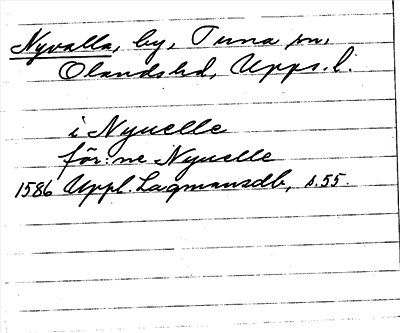 Nyvalla, by, Tuna sn,
Olandshd, Upps. l.
i Nyuelle
för:ne Nyuelle
1586 Uppl. Lagmansdb, s. 55.